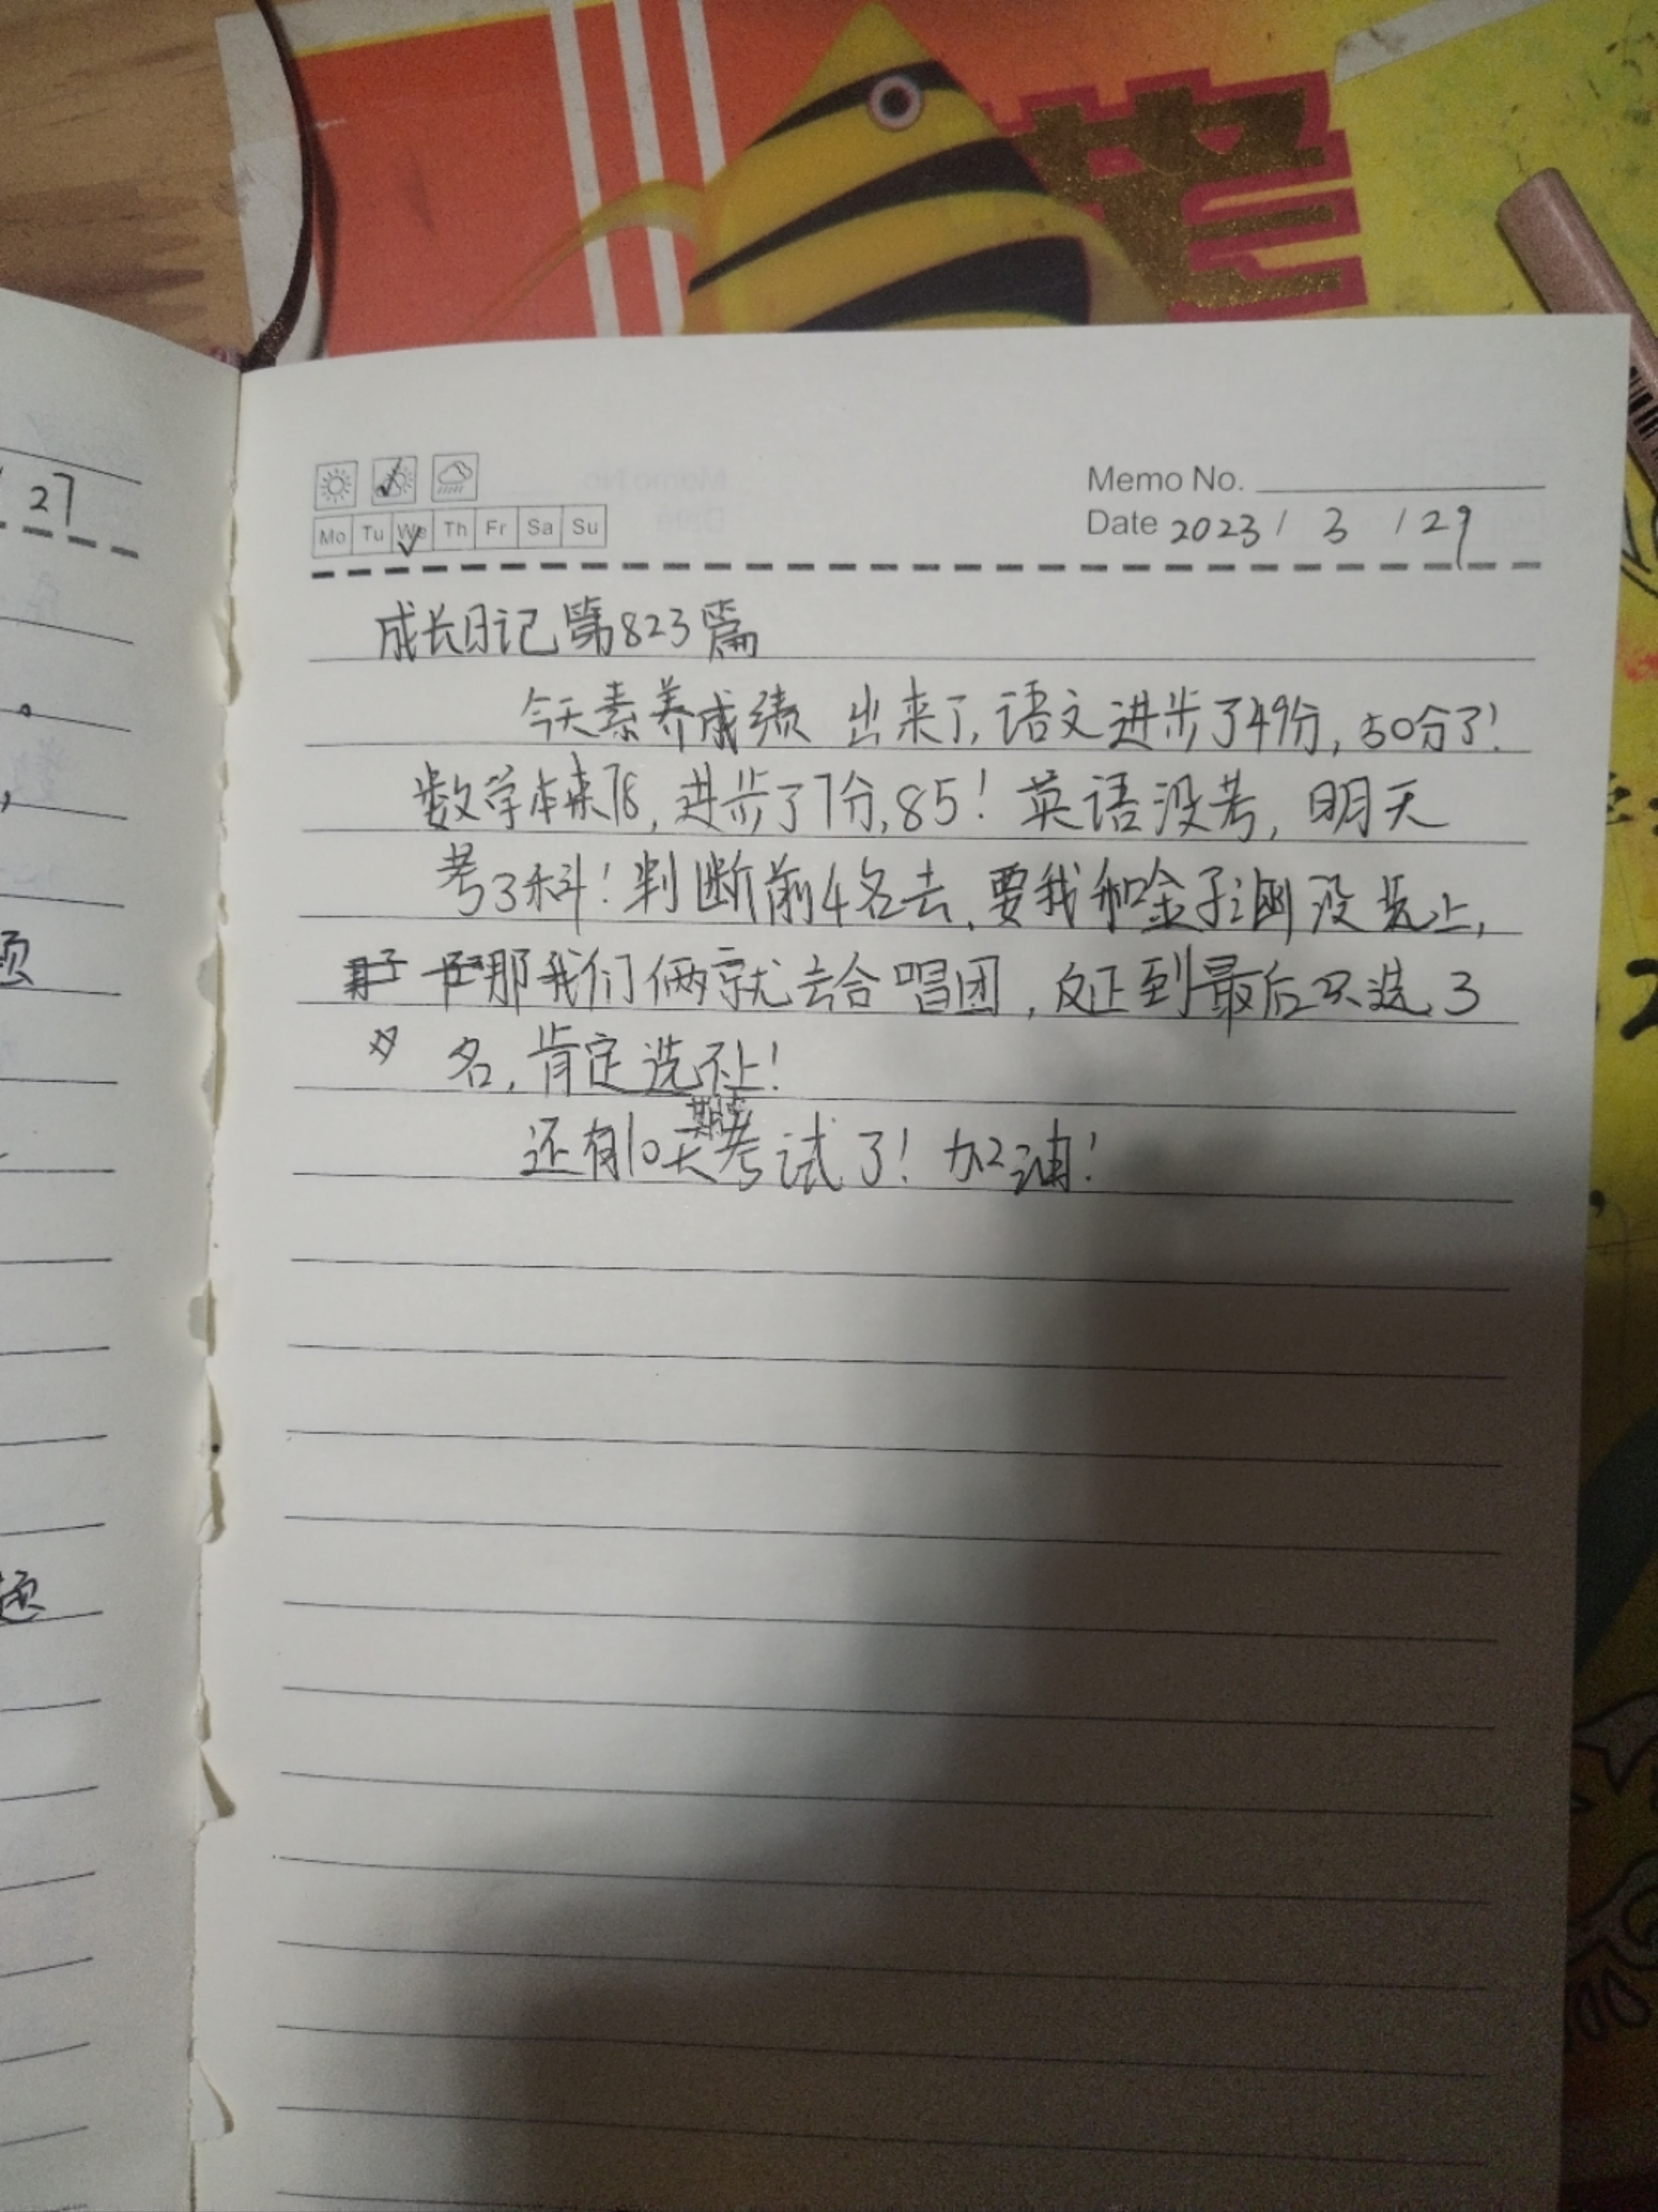 27
Memo No.
Mo Tu We Th Fr Sa Su
Date 2023 / 3 / 29
成长日记第823篇
今天素养成绩出来了,语文进步了49分,50分了!
数学本来78,进步了7分,85!英语没考,明天
考3科!判断前4名去,要我和金子涵没选上,
那我们俩就去合唱团,反正到最后只选3
名,肯定选不上!
还有10天期中考试了!加油!
题